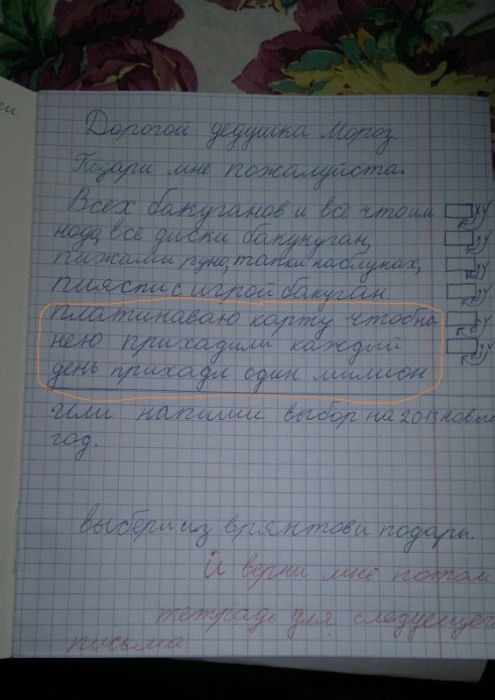 ти
Дорогой дедушка Мороз.
Подари мне пожалуйста.
Всех бакуганов и всё что им
нода, все диски бакукуган,
пижами руно, тапки каблуках,
пияспи с игрой бакуган.
платинаваю карту чтобы на
нею приходили каждый
день прихадл один милион
или напиши выбор на 2013 новые
год.
выбери из врянтов и подари.
И верни мне потом
тетрадь для следуещего
письма.